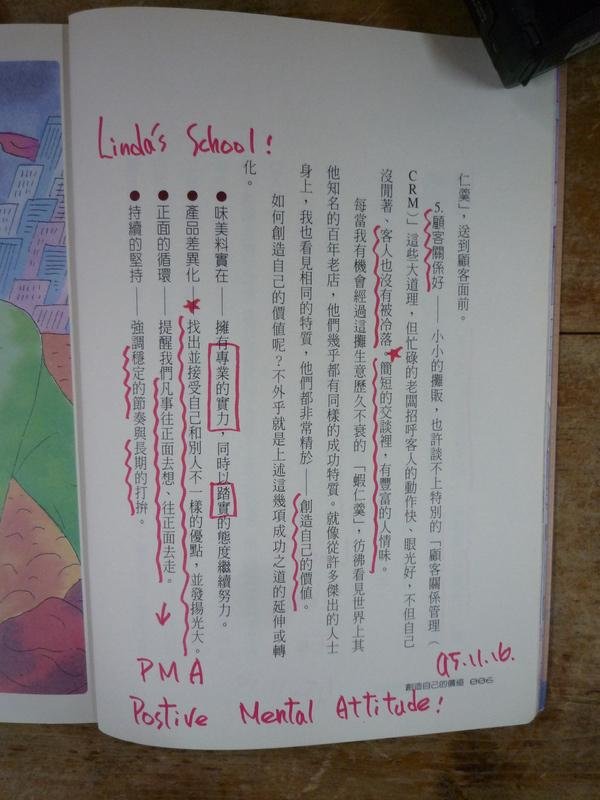 Linda's School!
仁羹」，送到顧客面前。
5.顧客關係好——小小的攤販，也許談不上特別的「顧客關係管理（
CRM）」這些大道理，但忙碌的老闆招呼客人的動作快、眼光好，不但自己
沒閒著、客人也沒有被冷落。簡短的交談裡，有豐富的人情味。
每當我有機會經過這攤生意歷久不衰的「蝦仁羹」，彷彿看見世界上其
他知名的百年老店，他們幾乎都有同樣的成功特質。就像從許多傑出的人士
身上，我也看見相同的特質，他們都非常精於——創造自己的價值。
如何創造自己的價值呢？不外乎就是上述這幾項成功之道的延伸或轉
化。
●味美料實在——擁有專業的實力，同時以踏實的態度繼續努力。
●產品差異化——找出並接受自己和別人不一樣的優點，並發揚光大。
●正面的循環——提醒我們凡事往正面去想、往正面去走。
●持續的堅持——強調穩定的節奏與長期的打拚。
05.11.16.
創造自己的價值 006
PMA
Postive Mental Attitude!